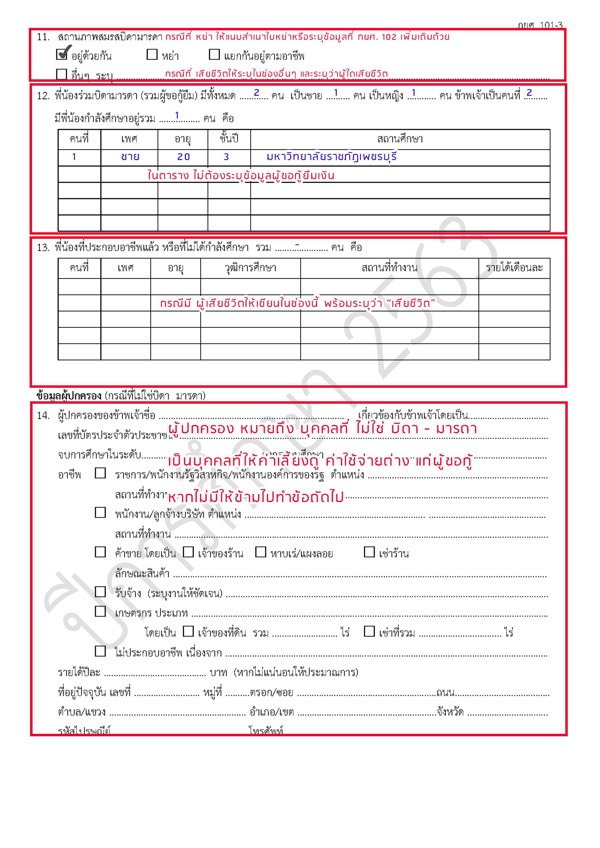 กยศ. 101-3
11. สถานภาพสมรสบิดามารดา กรณีที่ หย่า ให้แนบสำเนาใบหย่าหรือระบุข้อมูลที่ กยศ. 102 เพิ่มเติมด้วย
☑ อยู่ด้วยกัน ☐ หย่า ☐ แยกกันอยู่ตามอาชีพ
☐ อื่นๆ ระบุ กรณีที่ เสียชีวิตให้ระบุในช่องอื่นๆ และระบุว่าผู้ใดเสียชีวิต
12. พี่น้องร่วมบิดามารดา (รวมผู้ขอกู้ยืม) มีทั้งหมด ....2.... คน เป็นชาย ....1.... คน เป็นหญิง ....1.... คน ข้าพเจ้าเป็นคนที่ ....2....
มีพี่น้องกำลังศึกษาอยู่รวม ....1.... คน คือ
คนที่ เพศ อายุ ชั้นปี สถานศึกษา
1 ชาย 20 3 มหาวิทยาลัยราชภัฏเพชรบุรี
ในตาราง ไม่ต้องระบุข้อมูลผู้ขอกู้ยืมเงิน
13. พี่น้องที่ประกอบอาชีพแล้ว หรือที่ไม่ได้กำลังศึกษา รวม ....-.... คน คือ
คนที่ เพศ อายุ วุฒิการศึกษา สถานที่ทำงาน รายได้เดือนละ
กรณีมี ผู้เสียชีวิตให้เขียนในช่องนี้ พร้อมระบุว่า "เสียชีวิต"
ข้อมูลผู้ปกครอง (กรณีที่ไม่ใช่บิดา มารดา)
14. ผู้ปกครองของข้าพเจ้าชื่อ .................... เกี่ยวข้องกับข้าพเจ้าโดยเป็น....................
เลขที่บัตรประจำตัวประชาชน ผู้ปกครอง หมายถึง บุคคลที่ ไม่ใช่ บิดา - มารดา
จบการศึกษาในระดับ.......... เป็นบุคคลที่ให้ค่าเลี้ยงดู ค่าใช้จ่ายต่าง แก่ผู้ขอกู้
อาชีพ ☐ ราชการ/พนักงานรัฐวิสาหกิจ/พนักงานองค์การของรัฐ ตำแหน่ง ....................
สถานที่ทำงาน หากไม่มีให้ข้ามไปทำข้อถัดไป
☐ พนักงาน/ลูกจ้างบริษัท ตำแหน่ง ....................
สถานที่ทำงาน ....................
☐ ค้าขาย โดยเป็น ☐ เจ้าของร้าน ☐ หาบเร่/แผงลอย ☐ เช่าร้าน
ลักษณะสินค้า ....................
☐ รับจ้าง (ระบุงานให้ชัดเจน) ....................
☐ เกษตรกร ประเภท ....................
โดยเป็น ☐ เจ้าของที่ดิน รวม .................... ไร่ ☐ เช่าที่รวม .................... ไร่
☐ ไม่ประกอบอาชีพ เนื่องจาก ....................
รายได้ปีละ .................... บาท (หากไม่แน่นอนให้ประมาณการ)
ที่อยู่ปัจจุบัน เลขที่ .................... หมู่ที่ ..........ตรอก/ซอย ....................ถนน....................
ตำบล/แขวง .................... อำเภอ/เขต ....................จังหวัด ....................
รหัสไปรษณีย์ .................... โทรศัพท์ ....................
ปีการศึกษา 2563